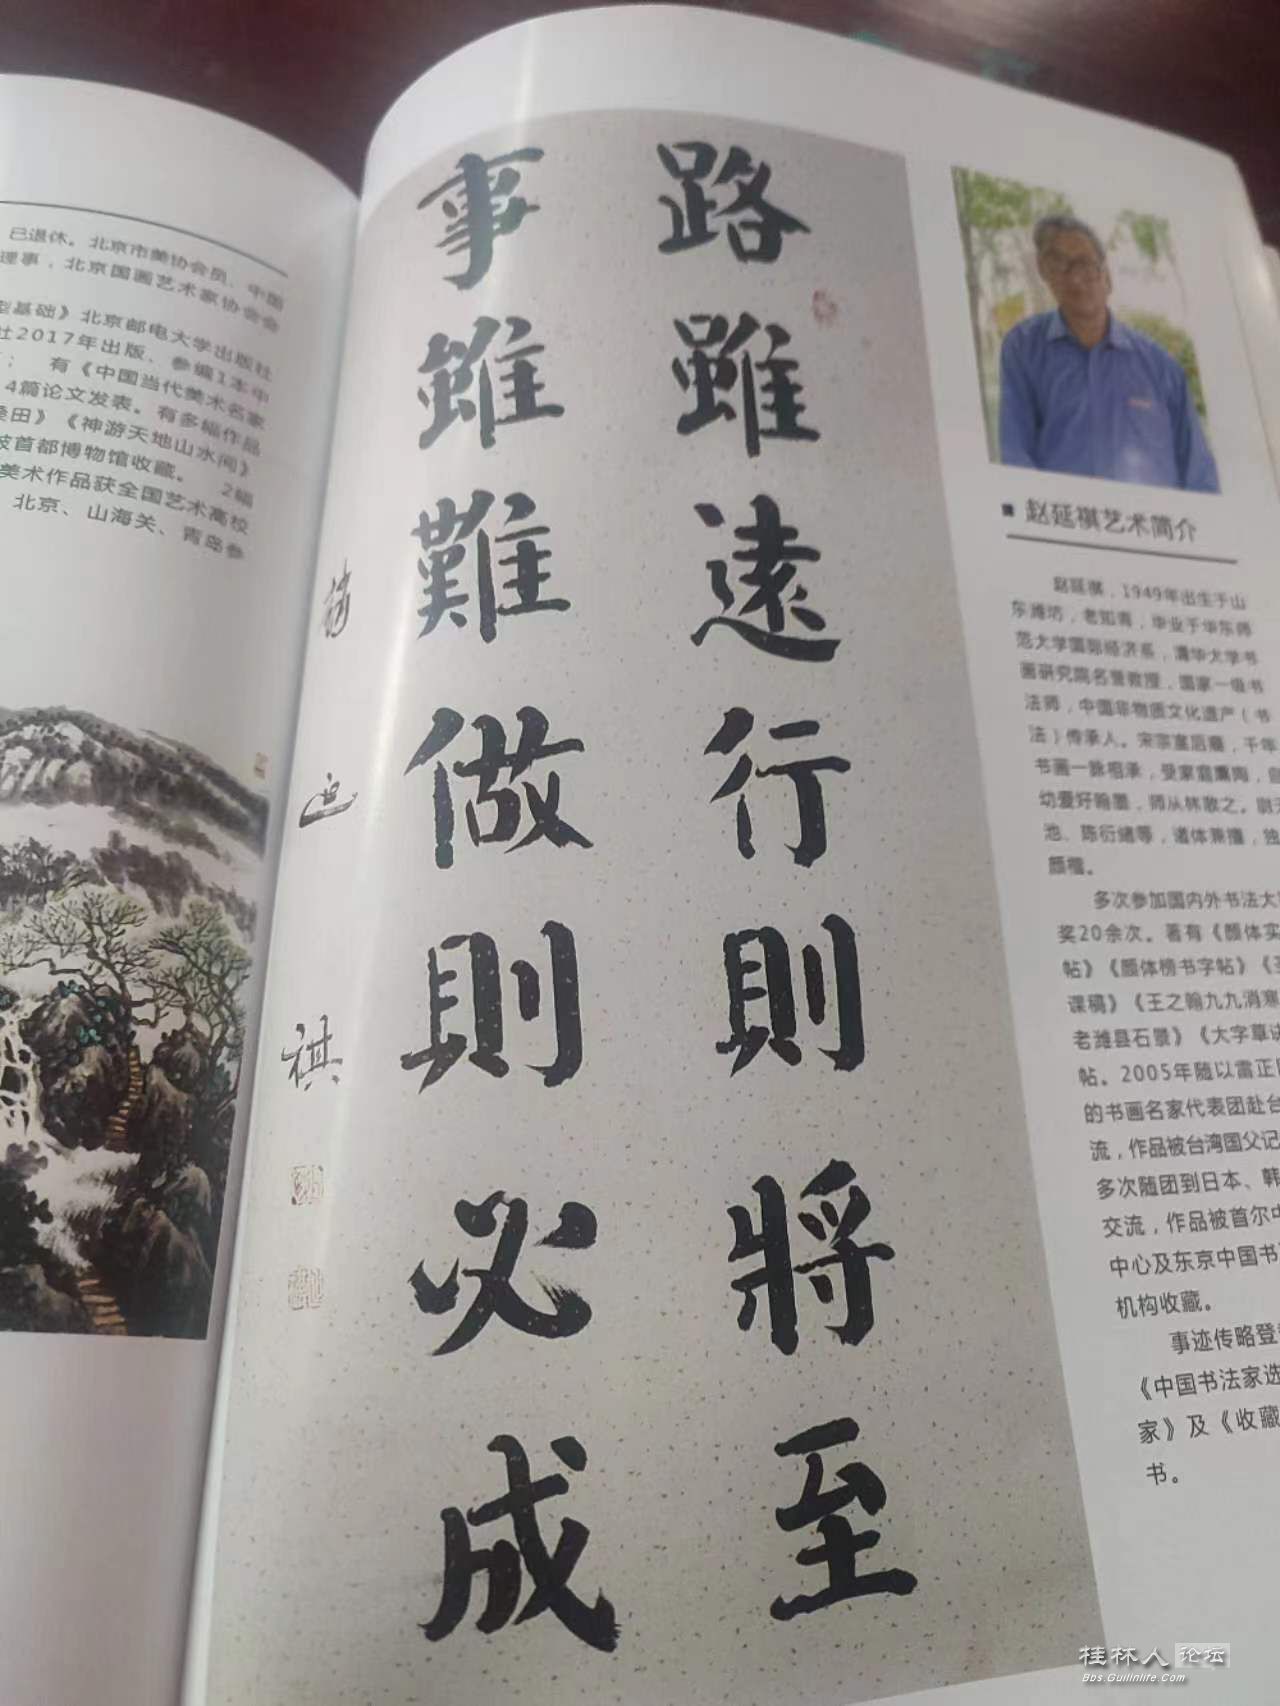 已退休。北京市美协会员、中国
理事，北京国画艺术家协会会
型基础》北京邮电大学出版社
社2017年出版、参编1本中
； 有《中国当代美术名家
4篇论文发表。有多幅作品
桑田》《神游天地山水间》
被首都博物馆收藏。 2幅
美术作品获全国艺术高校
北京、山海关、青岛参
路雖遠行則將至
事雖難做則必成
延祺
赵延祺艺术简介
赵延祺，1949年出生于山
东潍坊，老知青，毕业于华东师
范大学国际经济系，清华大学书
画研究院名誉教授，国家一级书
法师，中国非物质文化遗产（书
法）传承人。宋宗室后裔，千年
书画一脉相承，受家庭熏陶，自
幼爱好翰墨，师从林散之。尉天
池、陈衍绪等，诸体兼擅，独
颜楷。
多次参加国内外书法大
奖20余次。著有《颜体实
帖》《颜体榜书字帖》《
课稿》《王之翰九九消寒
老潍县石景》《大字草诀
帖。2005年随以雷正
的书画名家代表团赴台
流，作品被台湾国父记
多次随团到日本、韩
交流，作品被首尔中
中心及东京中国书
机构收藏。
事迹传略登
《中国书法家选
家》及《收藏
书。
桂林人论坛
Bbs.Guilinlife.com